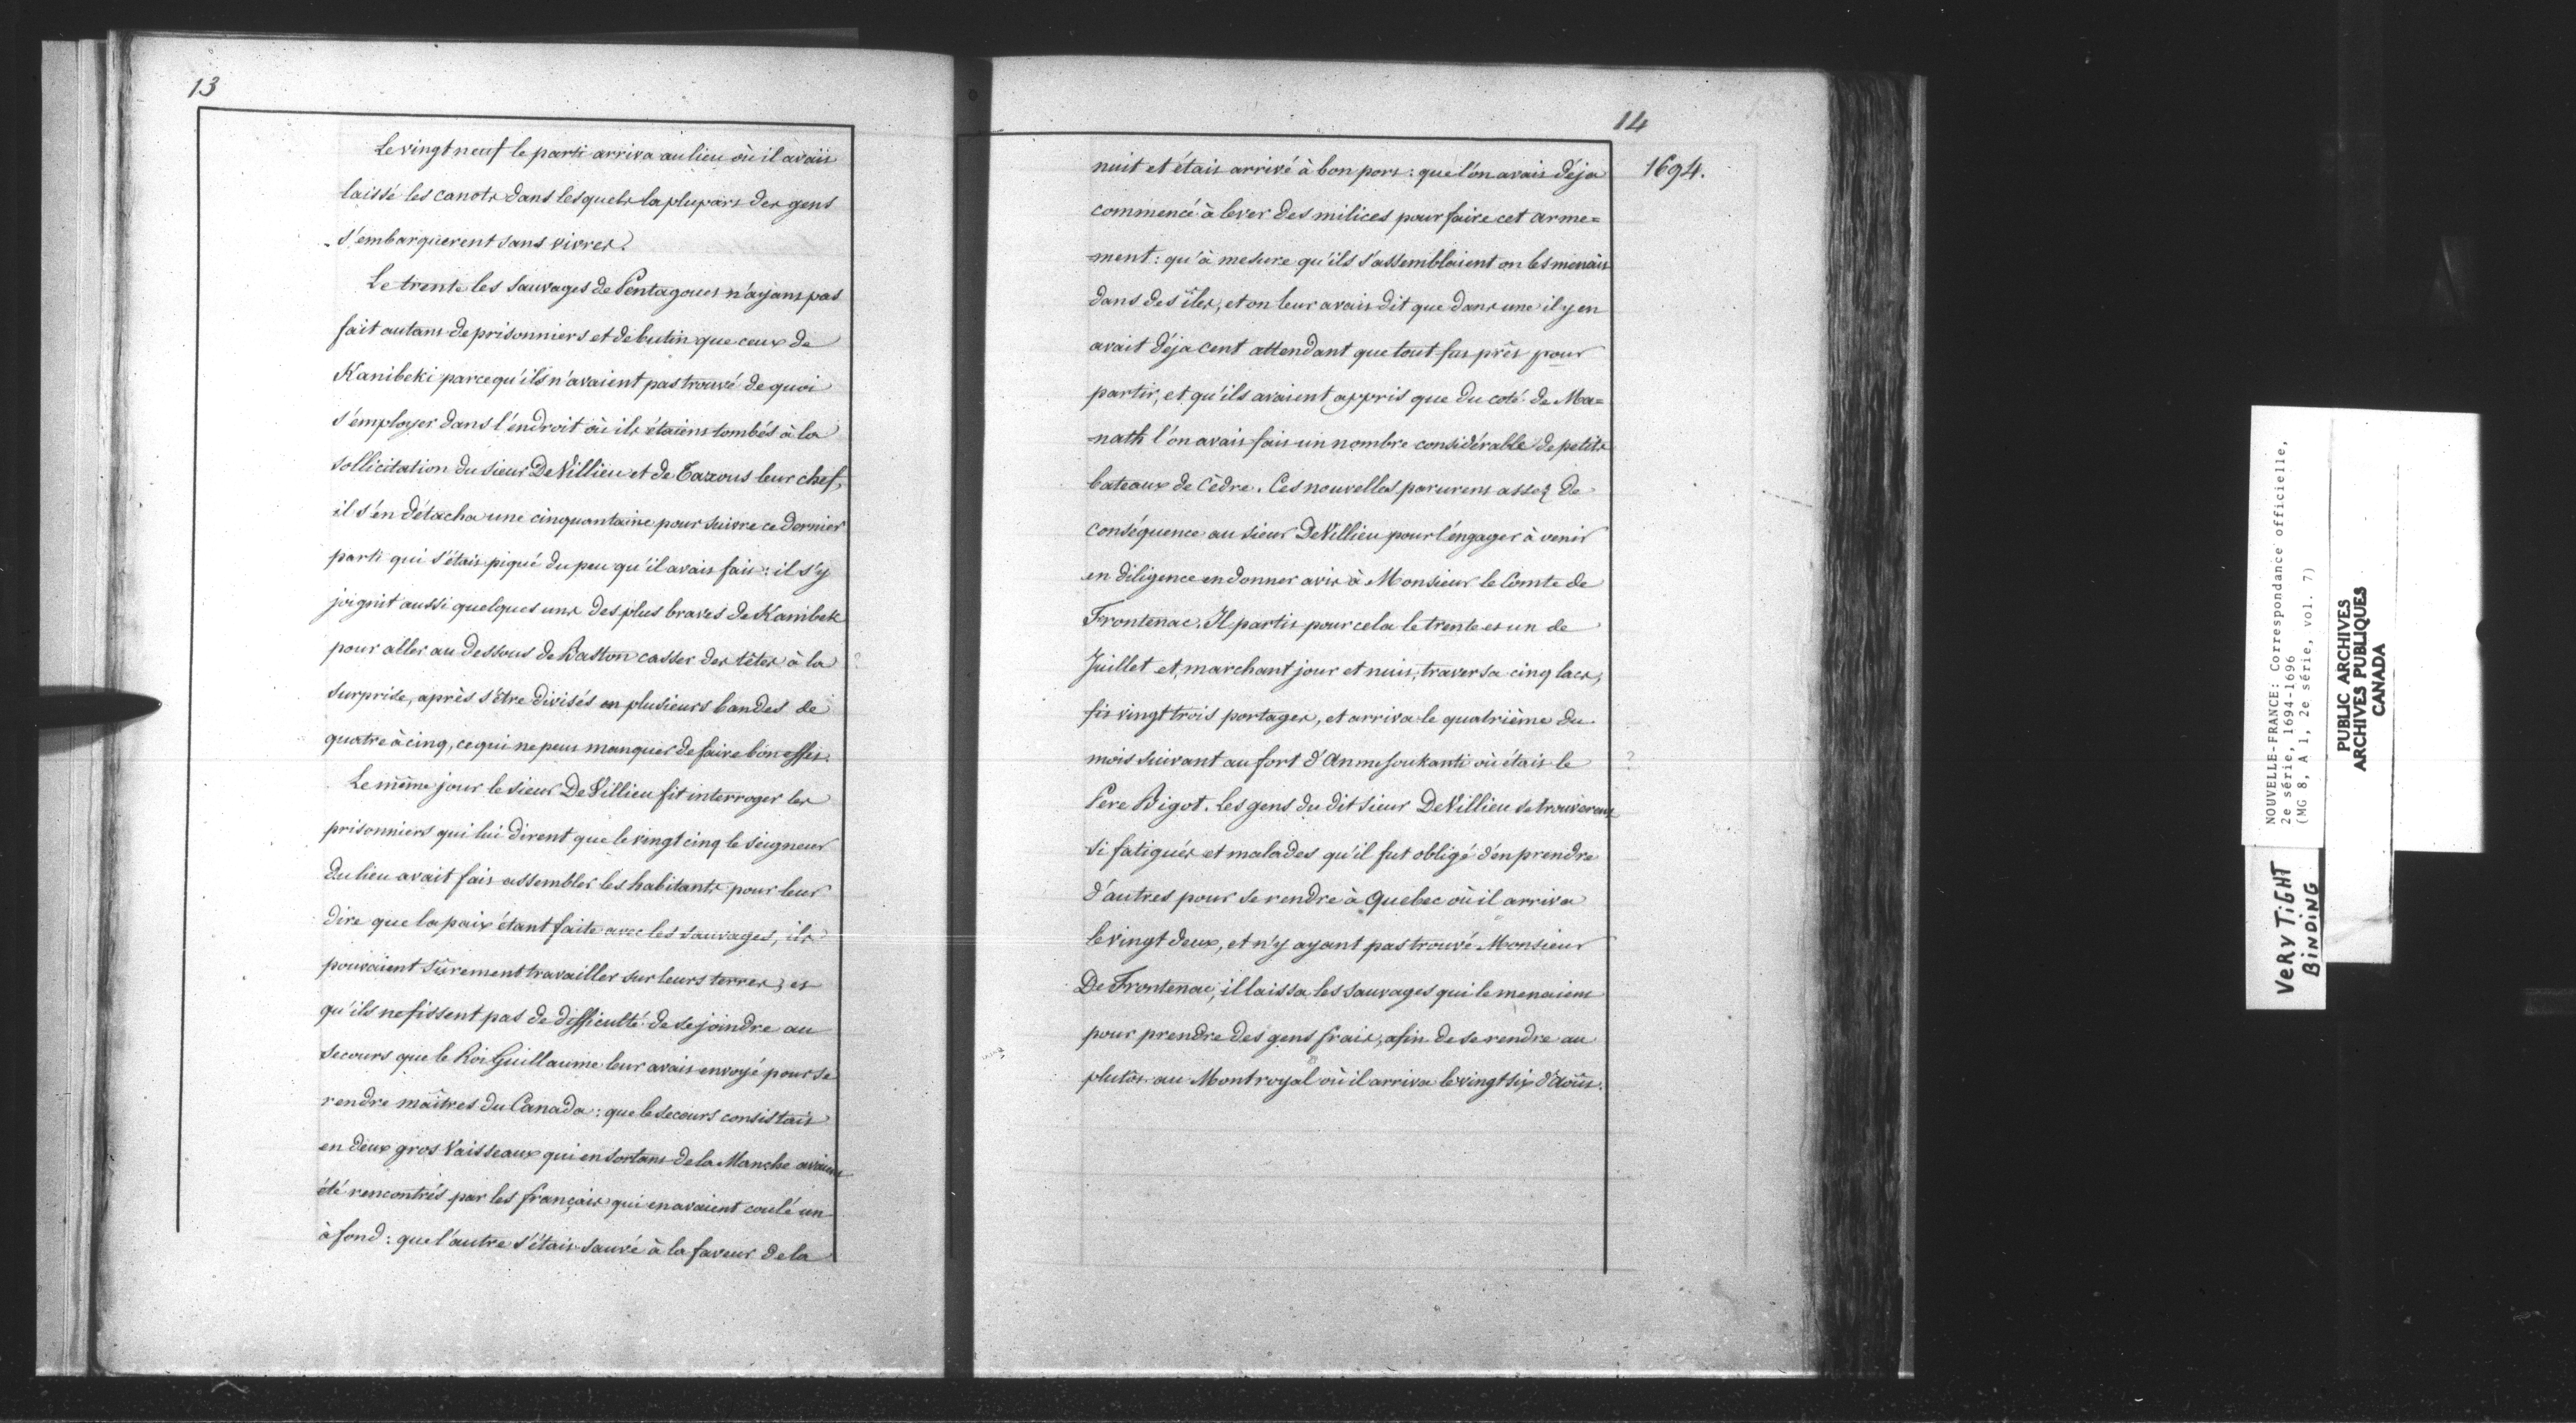 13
Le vingt neuf le parti arriva au lieu où il avait
laissé les canots dans lesquels la plupart des gens
s'embarquerent sans vivres.
Le trente les Sauvages de Pentagouet n'ayant pas
fait autant de prisonniers et de butin que ceux de
Kanibeki parcequ'ils n'avaient pas trouvé de quoi
s'employer dans l'endroit où ils étaient tombés à la
sollicitation du sieur De Villieu et de Taxous leur chef,
il s'en détacha une cinquantaine pour suivre ce dernier
parti qui s'était piqué du peu qu'il avait fait : il s'y
joignit aussi quelques uns des plus braves de Kanibek
pour aller au dessous de Baston casser des têtes à la ?
surprise, après s'être divisés en plusieurs bandes de
quatre à cinq, ce qui ne peut manquer de faire bon effet.
Le même jour le sieur De Villieu fit interroger les
prisonniers qui lui dirent que le vingt cinq le seigneur
du lieu avait fait assembler les habitants pour leur
dire que la paix étant faite avec les sauvages, ils
pouvaient sûrement travailler sur leurs terres, et
qu'ils ne fissent pas de difficulté de se joindre au
secours que le Roi Guillaume leur avait envoyé pour se
rendre maîtres du Canada : que le secours consistait
en deux gros Vaisseaux qui en sortant de la Manche avaient
été rencontrés par les français qui en avaient coulé un
à fond : que l'autre s'était sauvé à la faveur de la
14
1694.
nuit et était arrivé à bon port : que l'on avait déja
commencé à lever des milices pour faire cet arme=
=ment : qu'à mesure qu'ils s'assemblaient on les menait
dans des îles, et on leur avait dit que dans une il y en
avait déja cent attendant que tout fut prêt pour
partir, et qu'ils avaient appris que du coté de Ma=
=nath l'on avait fait un nombre considérable de petits
bateaux de Cèdre. Ces nouvelles parurent assez de
conséquence au sieur De Villieu pour l'engager à venir
en diligence en donner avis à Monsieur le Comte de
Frontenac. Il partit pour cela le trente et un de
Juillet et, marchant jour et nuit, traversa cinq lacs,
fit vingt trois portages, et arriva le quatrième du
mois suivant au fort d'Anmesoukanti où était le ?
Pere Bigot. Les gens du dit sieur De Villieu se trouverent
si fatigués et malades qu'il fut obligé d'en prendre
d'autres pour se rendre à Quebec où il arriva
le vingt deux, et n'y ayant pas trouvé Monsieur
De Frontenac, il laissa les sauvages qui le menaient
pour prendre des gens frais, afin de se rendre au
plutôt au Montroyal où il arriva le vingt six d'Août.
NOUVELLE-FRANCE: Correspondance officielle,
2e série, 1694-1696
(MG 8, A 1, 2e série, vol. 7)
PUBLIC ARCHIVES
ARCHIVES PUBLIQUES
CANADA
VERY TIGHT
BINDING